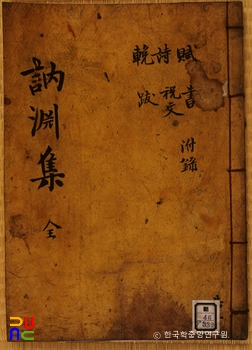 訥淵集 全
賦 詩 輓
書 祝文 跋
附錄
© 한국학중앙연구원